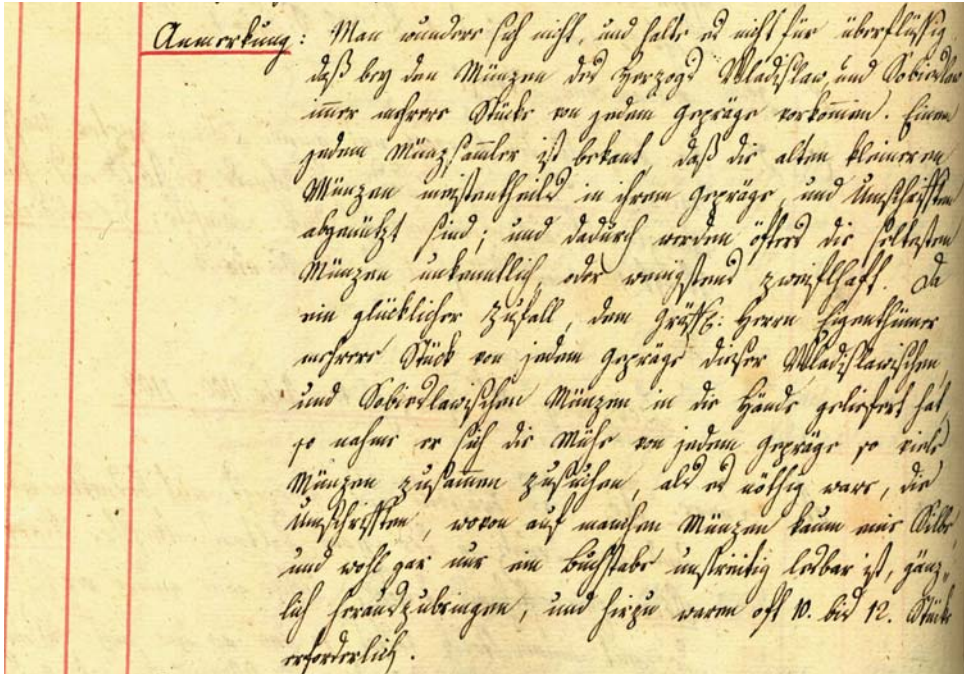 Anmerkung: Man wundere sich nicht, und halte es nicht für überflüssig
daß bey den Münzen des Herzogs Wladislaw, und Sobieslaw
imer mehrere Stücke von jedem Gepräge vorkomen. Einem
jedem Münzsamler ist bekant, daß die alten kleineren
Münzen meistentheils in ihrem Gepräge, und Umschrifften
abgenützt sind; und dadurch werden öfters die seltesten
Münzen unkenntlich, oder wenigstens zweifelhaft. Da
ein glücklicher Zufall, dem Gräffl: Herrn Eigenthümer
mehrere Stück von jedem Gepräge dieser Wladislawischen
und Sobieslawischen Münzen in die Hände geliefert hat,
so nahme er sich die Mühe von jedem Gepräge so viele
Münzen zusamen zusuchen, als es nöthig ware, die
Umschrifften, wovon auf manchen Münzen kaum eine Silbe,
und wohl gar nur ein Buchstabe unstreitig lesbar ist, gänz-
lich herauszubringen, und hirzu waren oft 10. bis 12. Stücke
erforderlich.